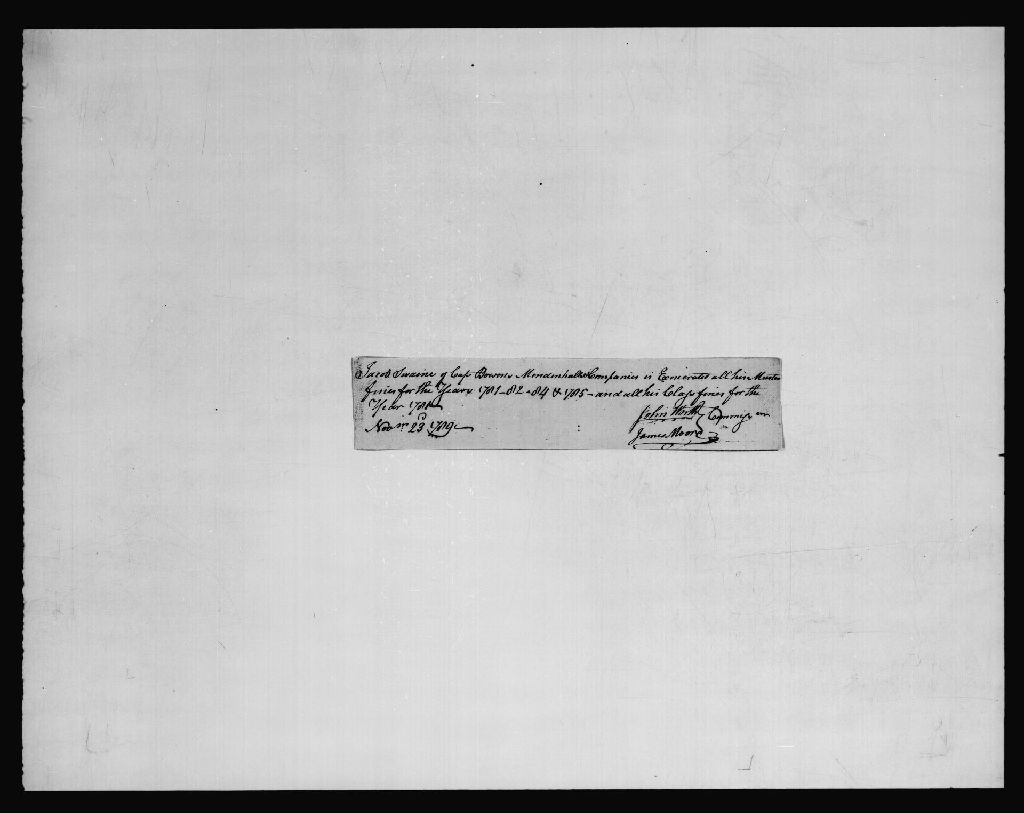 Jacob Swaine of Cap Bowns Mendenhalls Companies is Exonerated all his Muster
fines for the Years 1781-82-84 & 1785- and all his Class fines for the
Year 1781
John Commiss
Nov 23d 1789
James Moore